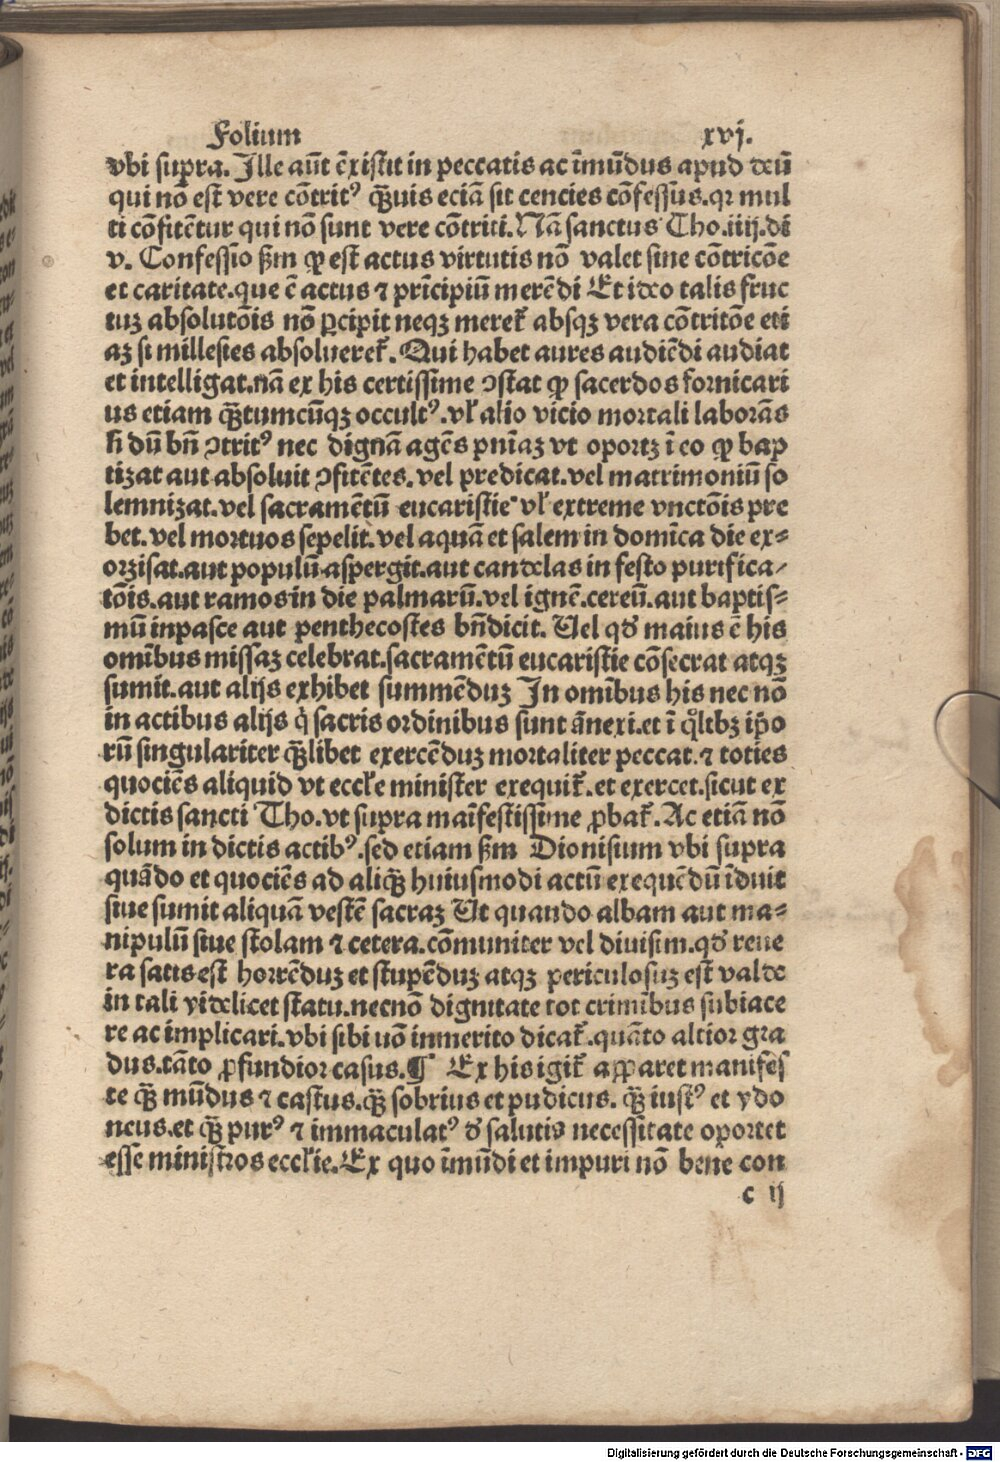 Folium xvj.
vbi supra. Ille aūt ēxistit in peccatis ac īmūdus apud deū
qui nō est vere cōtritꝰ qȝuis eciā sit cencies cōfessus.qꝛ mul
ti cōfitētur qui nō sunt vere cōtriti.Nā sanctus Tho.iiij.di
v. Confessio ẞm ꝙ est actus virtutis nō valet sine cōtricōe
et caritate.que ē actus ⁊ prīcipiū merēdi Et ideo talis fruc
tuȝ absolutōis nō ꝑcipit neqȝ meret̄ absqȝ vera cōtritōe eti
aȝ si millesies absolueret̄. Qui habet aures audiēdi audiat
et intelligat.nā ex his certissime ꝯstat ꝙ sacerdos fornicari
us etiam qȝtumcūqȝ occultꝰ.vl̄ alio vicio mortali laborās
si dū bn̄ ꝯtritꝰ nec dignā agēs pnīaȝ vt oportȝ ī eo ꝙ bap
tizat aut absoluit ꝯfitētes.vel predicat.vel matrimoniū so
lemnizat.vel sacramētū eucaristie vl̄ extreme vnctōis pre
bet.vel mortuos sepelit.vel aquā et salem in domīca die ex⸗
orzisat.aut populū aspergit.aut candelas in festo purifica⸗
tōis.aut ramos in die palmarū.vel ignē.cereū.aut baptis⸗
mū in pasce aut penthecostes bn̄dicit. Uel qd̄ maius ē his
omībus missaȝ celebrat.sacramētū eucaristie cōsecrat atqȝ
sumit.aut alijs exhibet summēduȝ In omībus his nec nō
in actibus alijs q̇ sacris ordinibus sunt ānexi.et ī qͦltbȝ ip̄o
rū singulariter qȝlibet exercēduȝ mortaliter peccat.⁊ toties
quociēs aliquid vt eccl̄e minister exequit̄.et exercet.sicut ex
dictis sancti Tho.vt supra maīfestissime ꝓbat̄. Ac etiā nō
solum in dictis actibꝰ.sed etiam ẞm Dionisium vbi supra
quādo et quociēs ad aliqȝ huiusmodi actū exequēdū īduit
siue sumit aliquā vestē sacraȝ Ut quando albam aut ma⸗
nipulū siue stolam ⁊ cetera.cōmuniter vel diuisim.qd̄ reue
ra satis est horrēduȝ et stupēduȝ atqȝ periculosuȝ est valde
in tali videlicet statu.necnō dignitate tot crimībus subiace
re ac implicari.vbi sibi nō inmerito dicat̄.quāto altior gra
dus.tāto ꝓfundior casus.¶ Ex his igit̄ apparet manifes
te qȝ mūdus ⁊ castus.qȝ sobrius et pudicus. qȝ iustꝰ et ydo
neus.et qȝ purꝰ ⁊ immaculatꝰ d̄ salutis necessitate oportet
esse ministros eccl̄ie.Ex quo īmūdi et impuri nō bene con
c ij
Digitalisierung gefördert durch die Deutsche Forschungsgemeinschaft - DFG